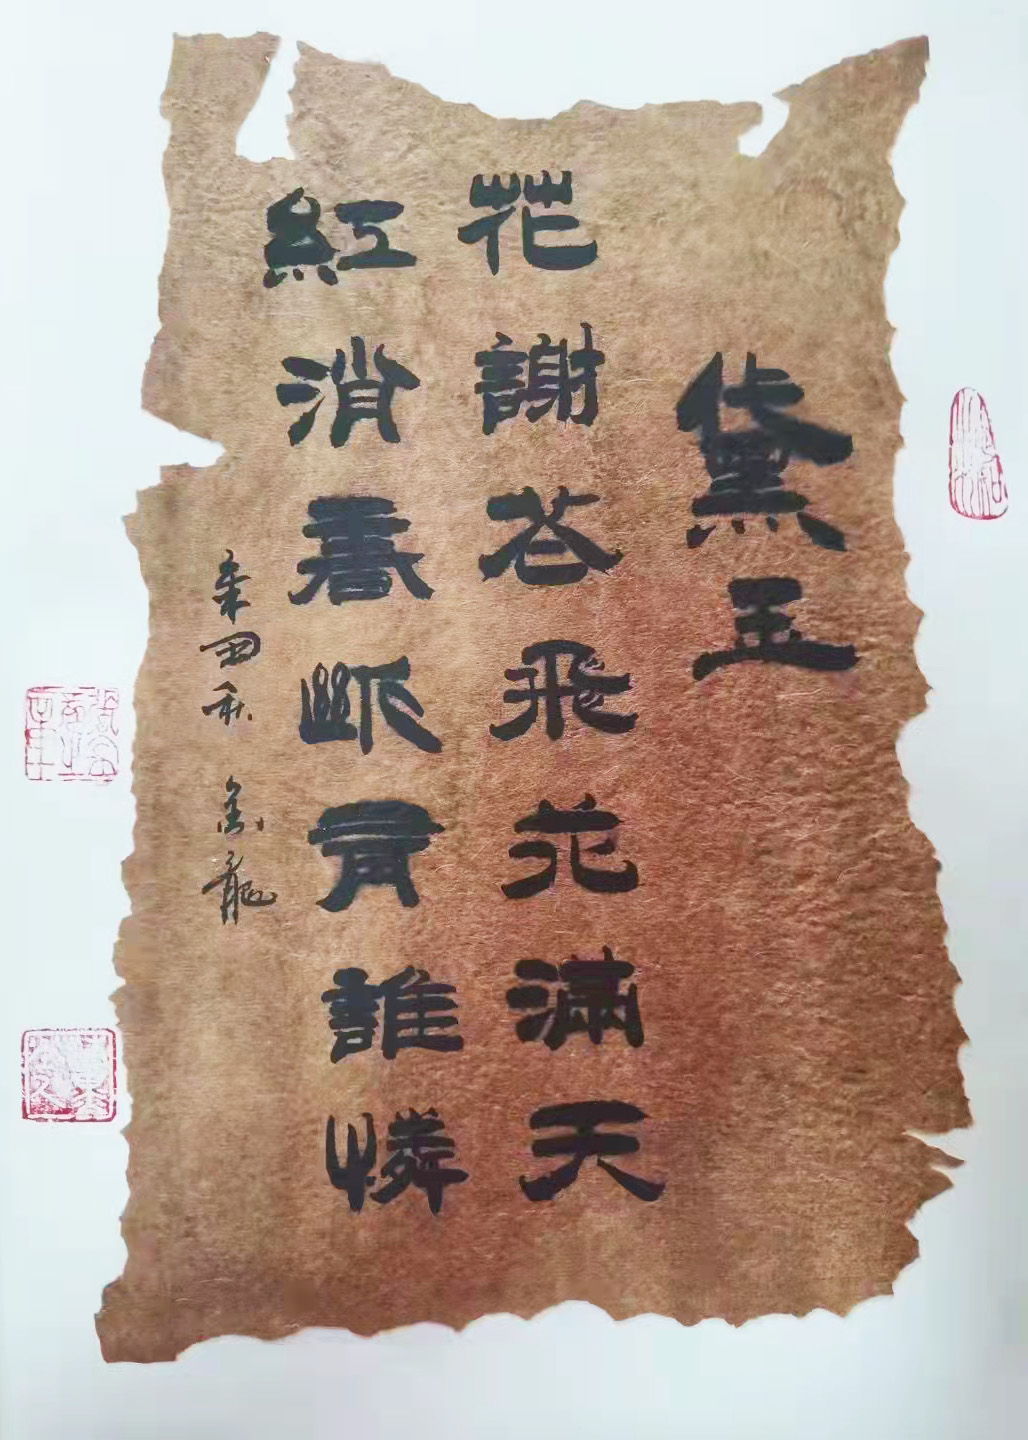 黛玉
花謝花飛花滿天
紅消香斷有誰憐
辛丑秋 龍